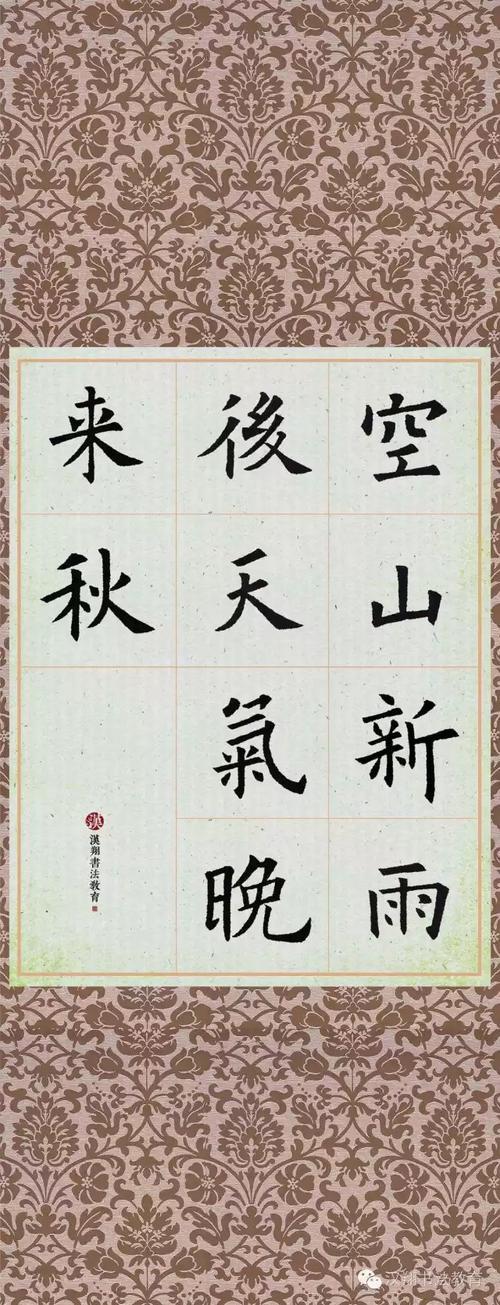 空山新雨
後天氣晚
来秋
漢
漢翔書法教育
汉翔书法教育